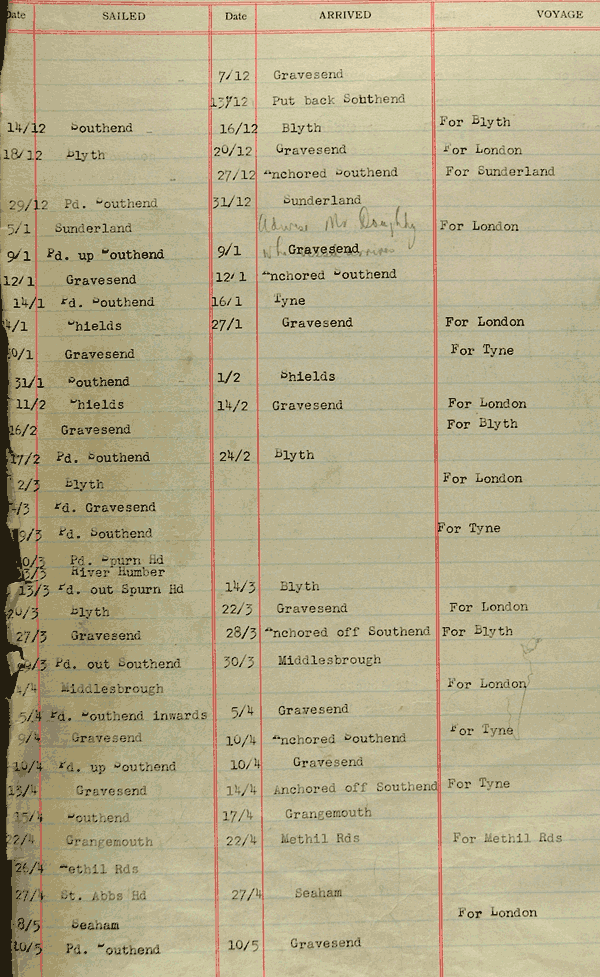 Date SAILED Date ARRIVED VOYAGE
7/12 Gravesend
13/12 Put back Southend
14/12 Southend 16/12 Blyth For Blyth
18/12 Blyth 20/12 Gravesend For London
27/12 Anchored Southend For Sunderland
29/12 Pd. Southend 31/12 Sunderland
Advise Mr Doughty
5/1 Sunderland For London
9/1 Pd. up Southend 9/1 Gravesend
12/1 Gravesend 12/1 Anchored Southend
14/1 Pd. Southend 16/1 Tyne
4/1 Shields 27/1 Gravesend For London
0/1 Gravesend For Tyne
31/1 Southend 1/2 Shields
11/2 Shields 14/2 Gravesend For London
16/2 Gravesend For Blyth
17/2 Pd. Southend 24/2 Blyth
2/3 Blyth For London
4/3 Pd. Gravesend
9/3 Pd. Southend For Tyne
0/3 Pd. Spurn Hd
3/3 River Humber
13/3 Pd. out Spurn Hd 14/3 Blyth
20/3 Blyth 22/3 Gravesend For London
27/3 Gravesend 28/3 Anchored off Southend For Blyth
/3 Pd. out Southend 30/3 Middlesbrough
4/4 Middlesbrough For London
5/4 Pd. Southend inwards 5/4 Gravesend
9/4 Gravesend 10/4 Anchored Southend For Tyne
10/4 Pd. up Southend 10/4 Gravesend
13/4 Gravesend 14/4 Anchored off Southend For Tyne
15/4 Southend 17/4 Grangemouth
22/4 Grangemouth 22/4 Methil Rds For Methil Rds
26/4 Methil Rds
27/4 St. Abbs Hd 27/4 Seaham
8/5 Seaham For London
10/5 Pd. Southend 10/5 Gravesend